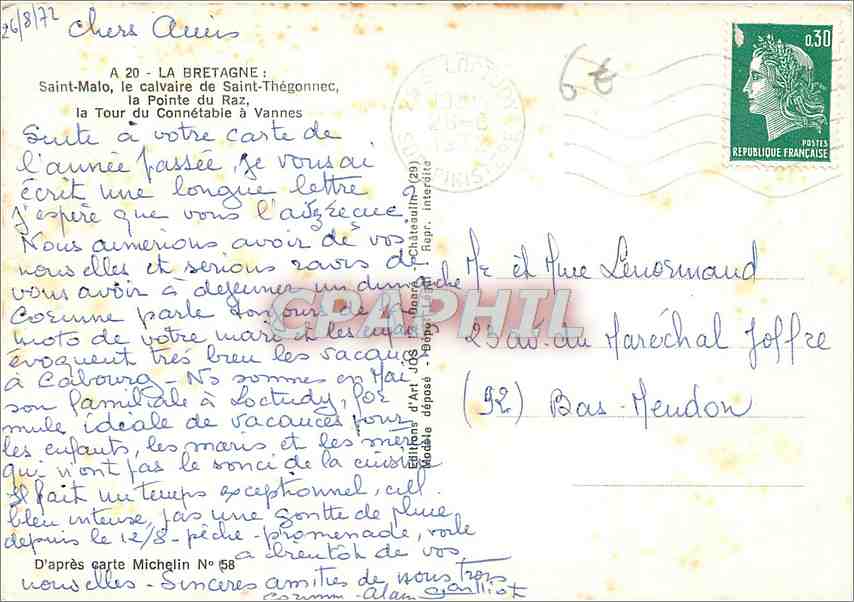 26/8/72
Chers Amis
A 20 - LA BRETAGNE :
Saint-Malo, le calvaire de Saint-Thégonnec,
la Pointe du Raz,
la Tour du Connétable à Vannes
Suite à votre carte de
l'année passée, je vous ai
écrit une longue lettre
j'espère que vous l'avez reçue ?
Nous aimerions avoir de vos
nouvelles et serions ravis de
vous avoir à déjeuner un dimanche
Corinne parle toujours de la
moto de votre mari et les enfants
évoquent très bien les vacances
à Cabourg - Ns sommes en Mai
son familiale à Loctudy, for
mule idéale de vacances pour
les enfants, les maris et les mères
qui n'ont pas le souci de la cuisine
Il fait un temps exceptionnel, ciel
bleu intense, pas une goutte de pluie
depuis le 12/8 - pêche - promenade, voile
a bientôt de vos
D'après carte Michelin N° 58
nouvelles - Sincères amitiés de nous trois
Corinne - Alain
Editions d'Art JOS Le Doaré - Châteaulin (29)
Modèle déposé - Dépôt légal Repr. interdite
CARAPHIL
6€
LOCTUDY
26-8
FINISTERE
0,30
POSTES
REPUBLIQUE FRANÇAISE
Mr et Mme Lenormand
23 av. du Maréchal Joffre
(92) Bas-Meudon